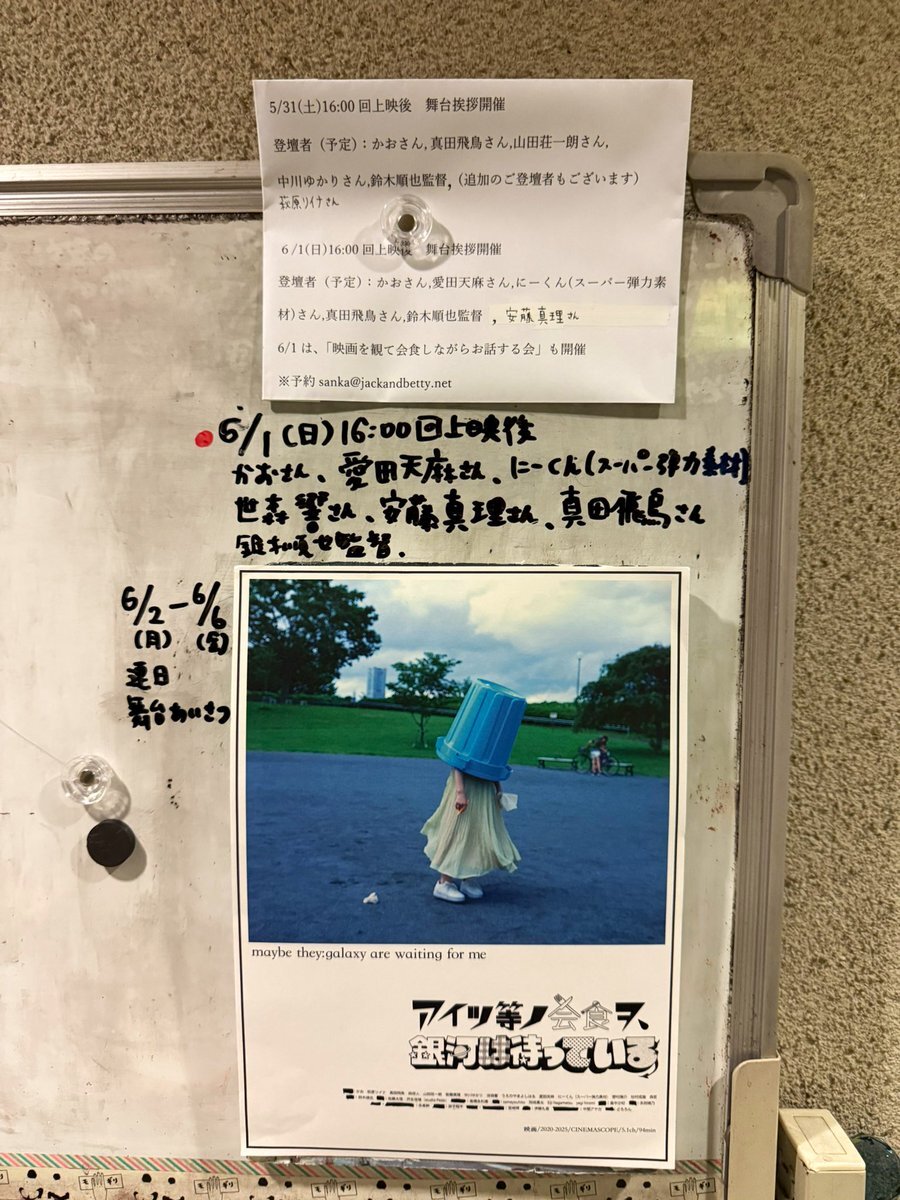 5/31(土)16:00 回上映後　舞台挨拶開催
登壇者（予定）：かおさん,真田飛鳥さん,山田荘一朗さん,
中川ゆかりさん,鈴木順也監督,（追加のご登壇者もございます）
萩原リイナさん
6/1(日)16:00 回上映後　舞台挨拶開催
登壇者（予定）：かおさん,愛田天麻さん,にーくん(スーパー弾力素
材)さん,真田飛鳥さん,鈴木順也監督 , 安藤真理さん
6/1 は、「映画を観て会食しながらお話する会」も開催
※予約 sanka@jackandbetty.net
6/1(日)16:00回上映後
かおさん、愛田天麻さん、にーくん(スーパー弾力素材)
世森響さん、安藤真理さん、真田飛鳥さん
鈴木順也監督.
6/2－6/6
(月)(金)
連日
舞台あいさつ
maybe they:galaxy are waiting for me
アイツ等ノ会食ヲ、
銀河は待っている
映画/2020-2025/CINEMASCOPE/5.1ch/94min